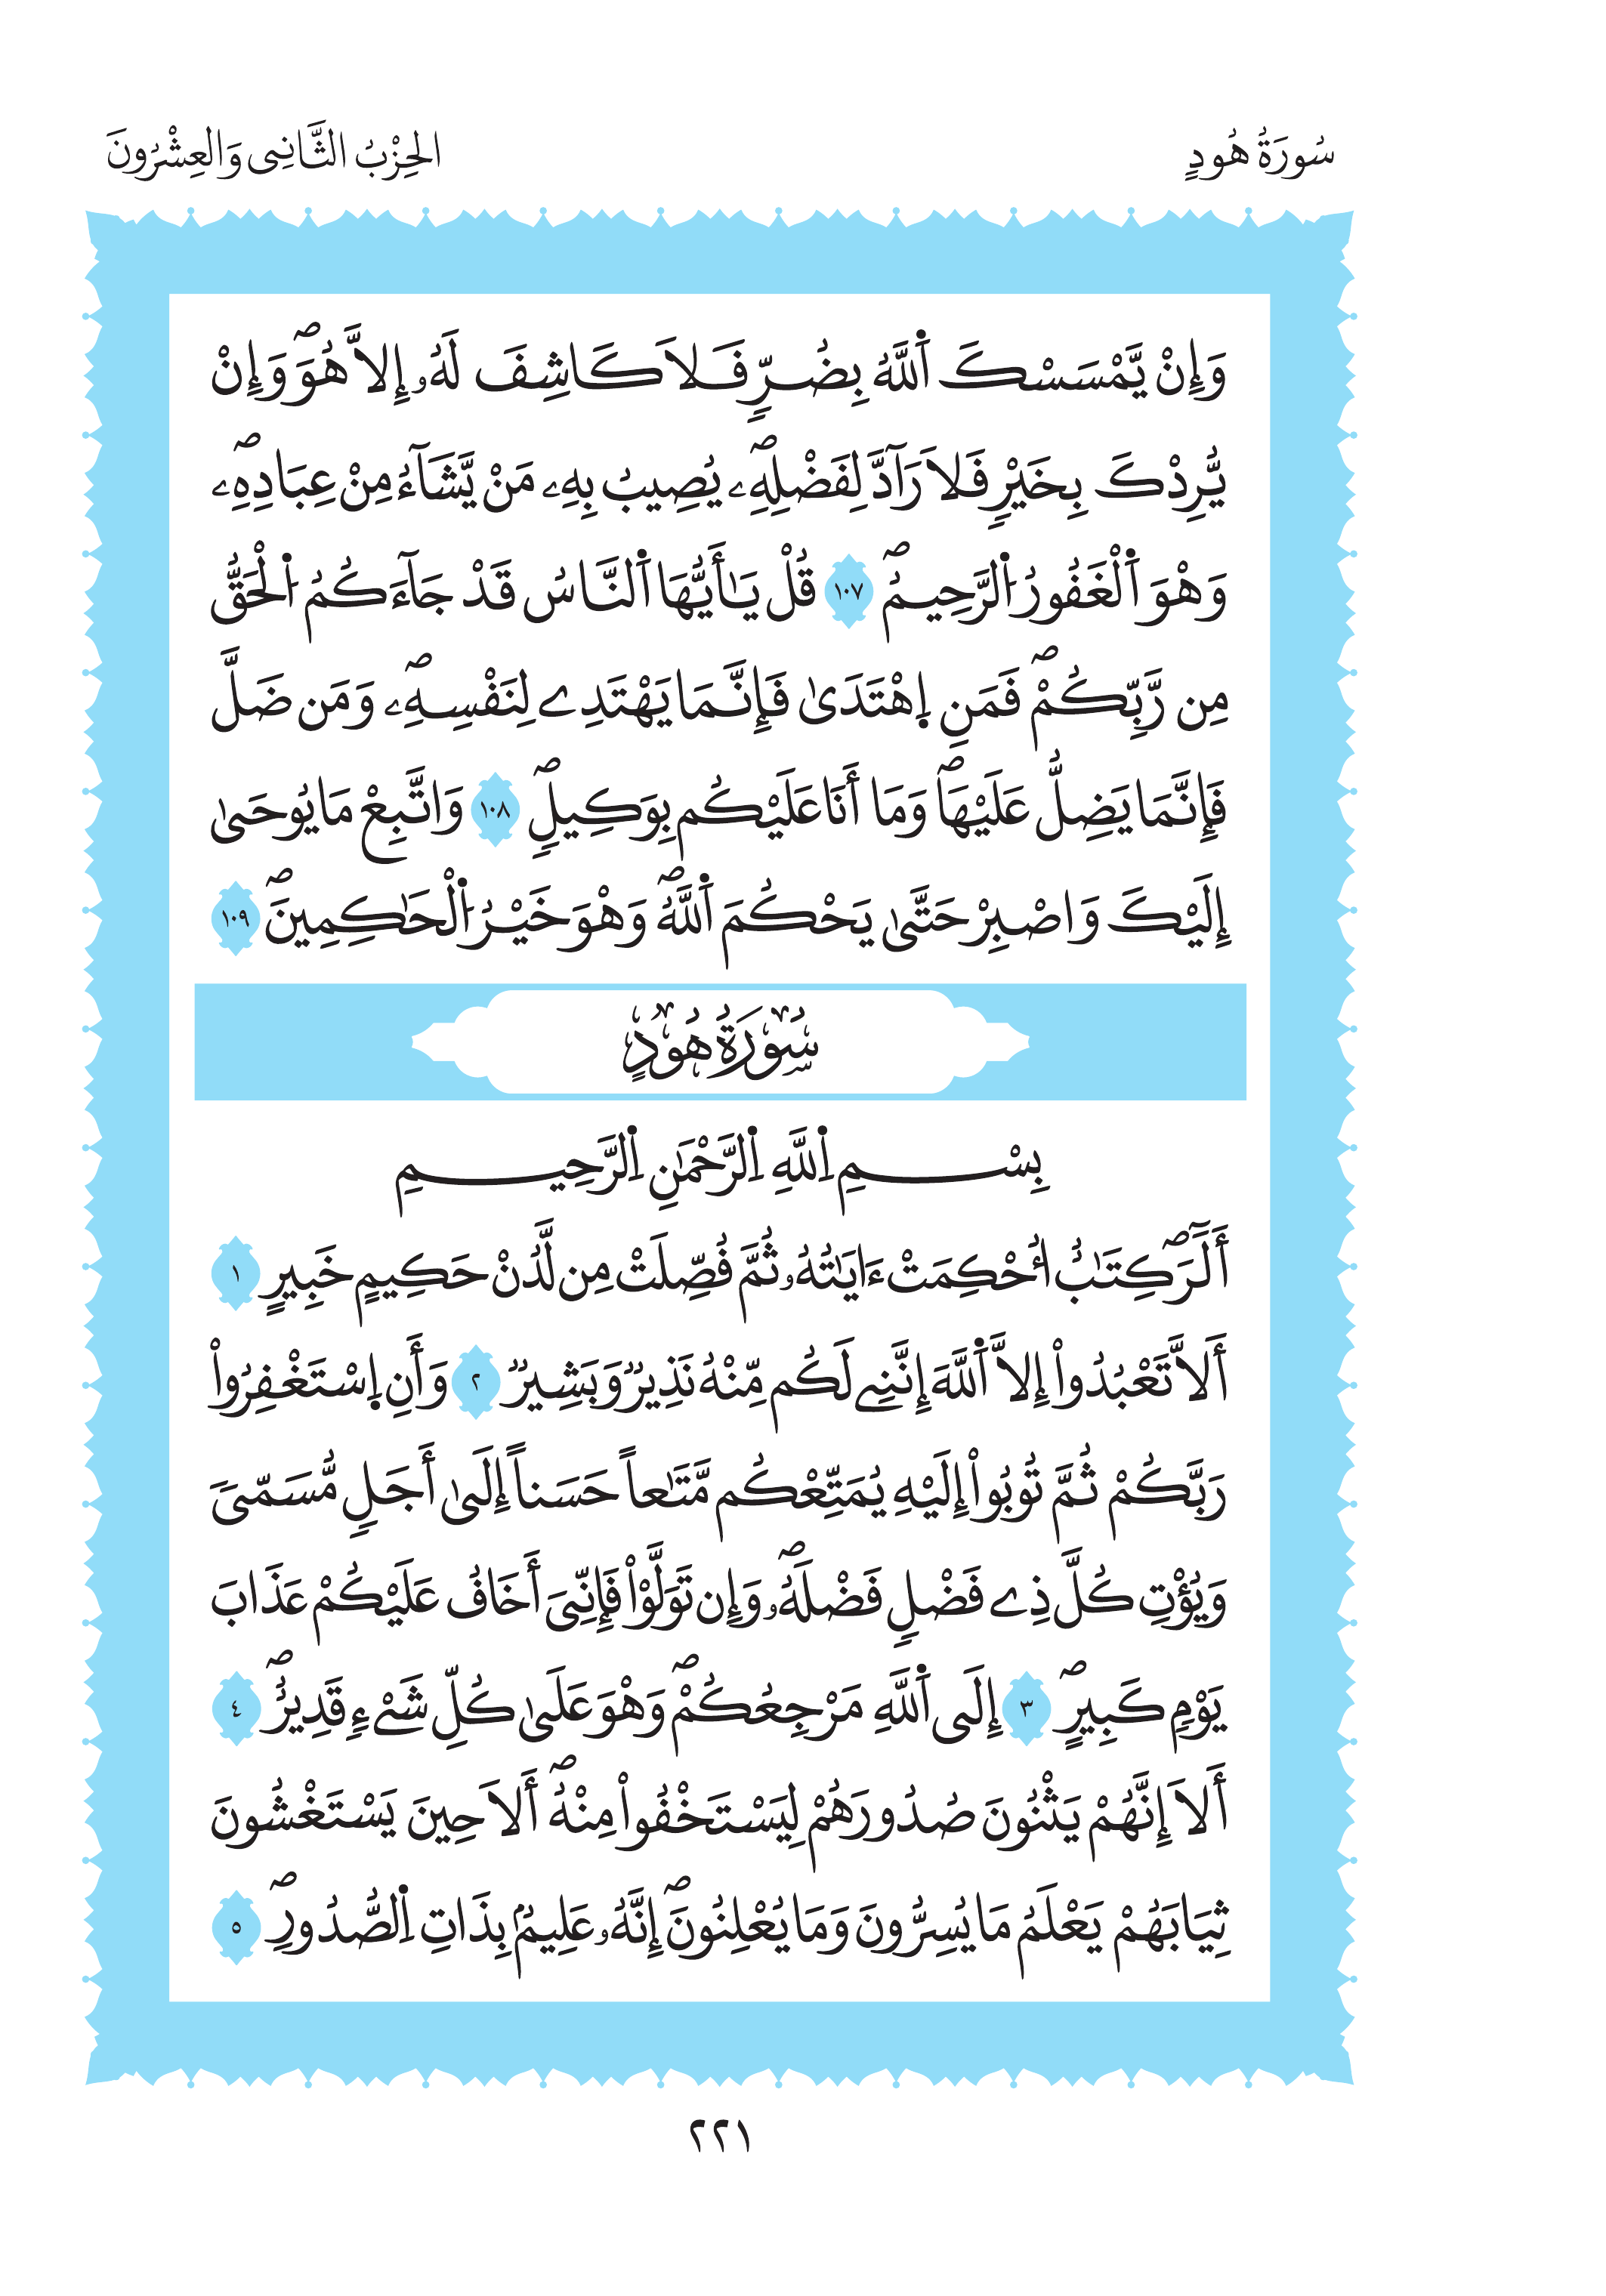 سُورَةُ هُودٍ
الحِزْبُ الثَّانِي وَالعِشْرُونَ
وَإِنْ يَّمْسَسْكَ اَ۬للَّهُ بِضُرٍّ فَلاَ كَاشِفَ لَهُۥ إِلاَّ هُوَۖ وَإِنْ
يُّرِدْكَ بِخَيْرٍ فَلاَ رَآدَّ لِفَضْلِهِۦۖ يُصِيبُ بِهِۦ مَنْ يَّشَآءُ مِنْ عِبَادِهِۦۖ
وَهْوَ اَ۬لْغَفُورُ اُ۬لرَّحِيمُۖ ١٠٧ قُلْ يَـٰٓأَيُّهَا اَ۬لنَّاسُ قَدْ جَآءَكُمُ اُ۬لْحَقُّ
مِن رَّبِّكُمْۖ فَمَنِ اِ۪هْتَدَىٰ فَإِنَّمَا يَهْتَدِے لِنَفْسِهِۦۖ وَمَن ضَلَّ
فَإِنَّمَا يَضِلُّ عَلَيْهَاۖ وَمَا أَنَا عَلَيْكُم بِوَكِيلٍۖ ١٠٨ وَاتَّبِعْ مَا يُوحَىٰ
إِلَيْكَ وَاصْبِرْ حَتَّىٰ يَحْكُمَ اَ۬للَّهُۖ وَهْوَ خَيْرُ اُ۬لْحَـٰكِمِينَۖ ١٠٩
سُورَةُ هُودٍ
بِسْمِ اِ۬للَّهِ اِ۬لرَّحْمَـٰنِ اِ۬لرَّحِيمِ
أَلَٓرَۖ كِتَـٰبٌ اُ۟حْكِمَتْ ءَايَـٰتُهُۥ ثُمَّ فُصِّلَتْ مِن لَّدُنْ حَكِيمٍ خَبِيرٍ ١
أَلاَّ تَعْبُدُواْ إِلاَّ اَ۬للَّهَ إِنَّنِے لَكُم مِّنْهُ نَذِيرٌ وَبَشِيرٌ ٢ وَأَنِ اِ۪سْتَغْفِرُواْ
رَبَّكُمْ ثُمَّ تُوبُواْ إِلَيْهِ يُمَتِّعْكُم مَّتَـٰعاً حَسَناً إِلَىٰ أَجَلٍ مُّسَمّىً
وَيُؤْتِ كُلَّ ذِے فَضْلٍ فَضْلَهُۥۖ وَإِن تَوَلَّوْاْ فَإِنِّيَ أَخَافُ عَلَيْكُمْ عَذَابَ
يَوْمٍ كَبِيرٍۖ ٣ إِلَى اَ۬للَّهِ مَرْجِعُكُمْۖ وَهْوَ عَلَىٰ كُلِّ شَےْءٍ قَدِيرٌۖ ٤
أَلاَ إِنَّهُمْ يَثْنُونَ صُدُورَهُمْ لِيَسْتَخْفُواْ مِنْهُۖ أَلاَ حِينَ يَسْتَغْشُونَ
ثِيَابَهُمْ يَعْلَمُ مَا يُسِرُّونَ وَمَا يُعْلِنُونَۖ إِنَّهُۥ عَلِيمٌ بِذَاتِ اِ۬لصُّدُورِۖ ٥
٢٢١